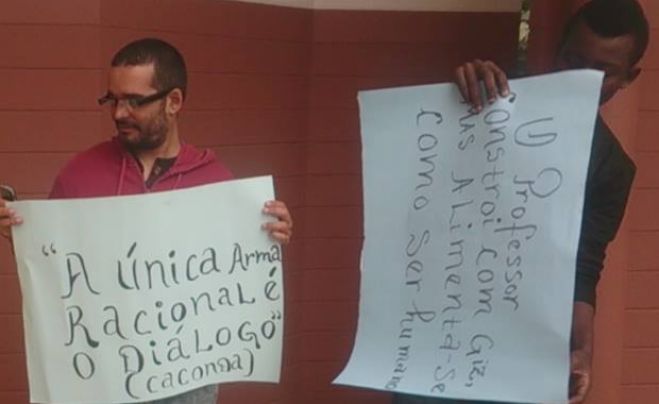 "A única Arma
Racional é
O Diálogo"
(caconda)
O Professor
Constroi com Giz,
Mas Alimenta-se
como Ser humano